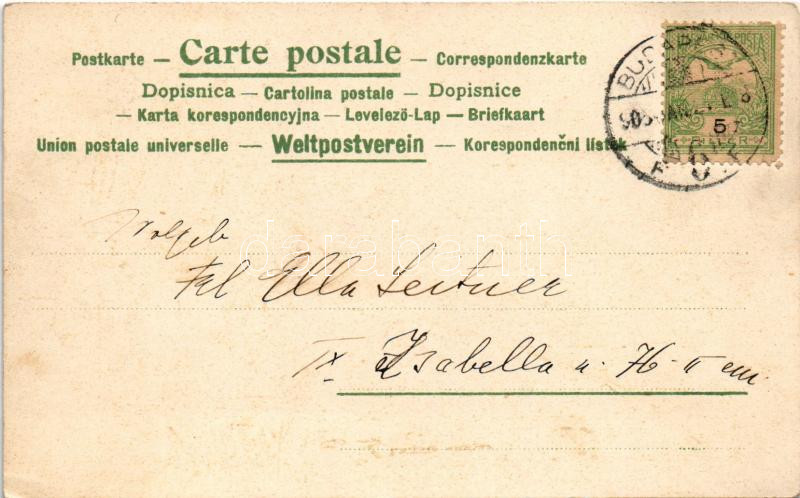 Postkarte — Carte postale — Correspondenzkarte
Dopisnica — Cartolina postale — Dopisnice
— Karta korespondencyjna — Levelező-Lap — Briefkaart
Union postale universelle — Weltpostverein — Korespondenční lístek
BUDAPEST
5
darabanth
Frl Ella Leitner
IX Izabella u. H II em.